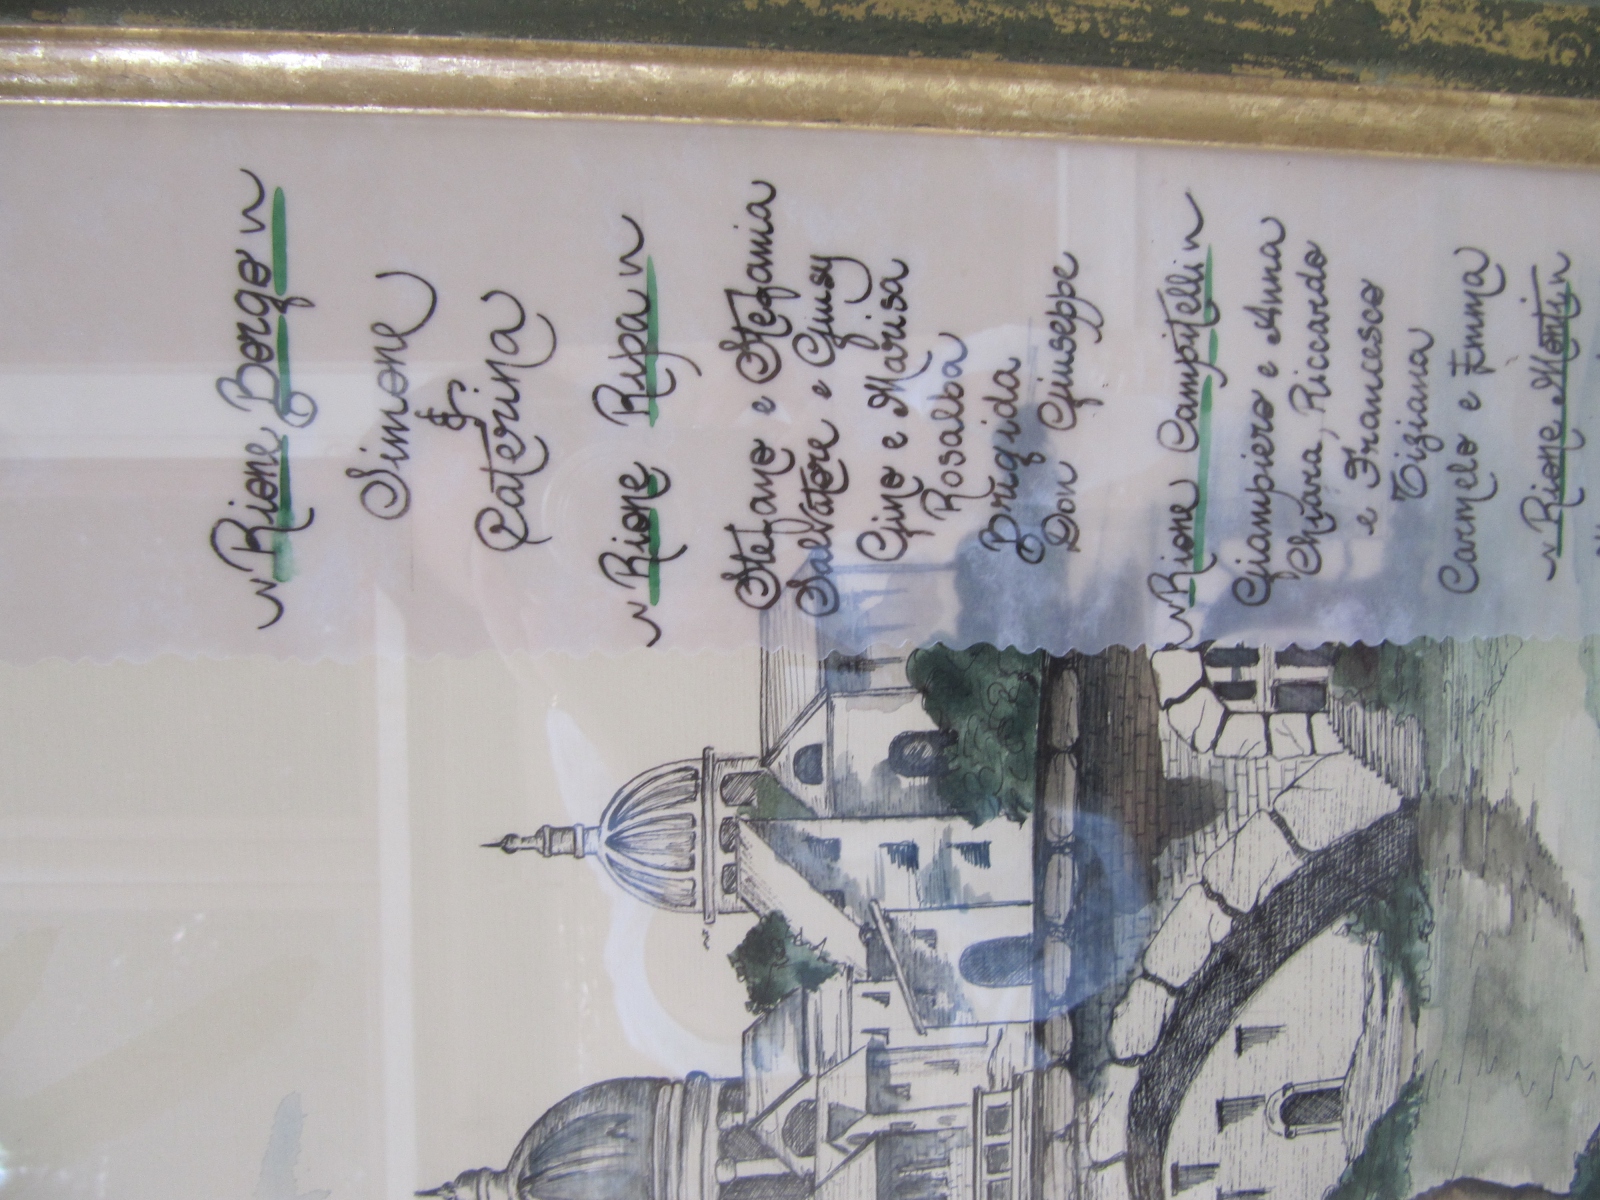 Rione Borgo
Simone
&
Caterina
Rione Ripa
Stefano e Stefania
Salvatore e Giusy
Gino e Marisa
Rosalba
Brigida
Don Giuseppe
Rione Campitelli
Giampiero e Anna
Chiara, Riccardo
e Francesco
Tiziana
Carmelo e Emma
Rione Monti